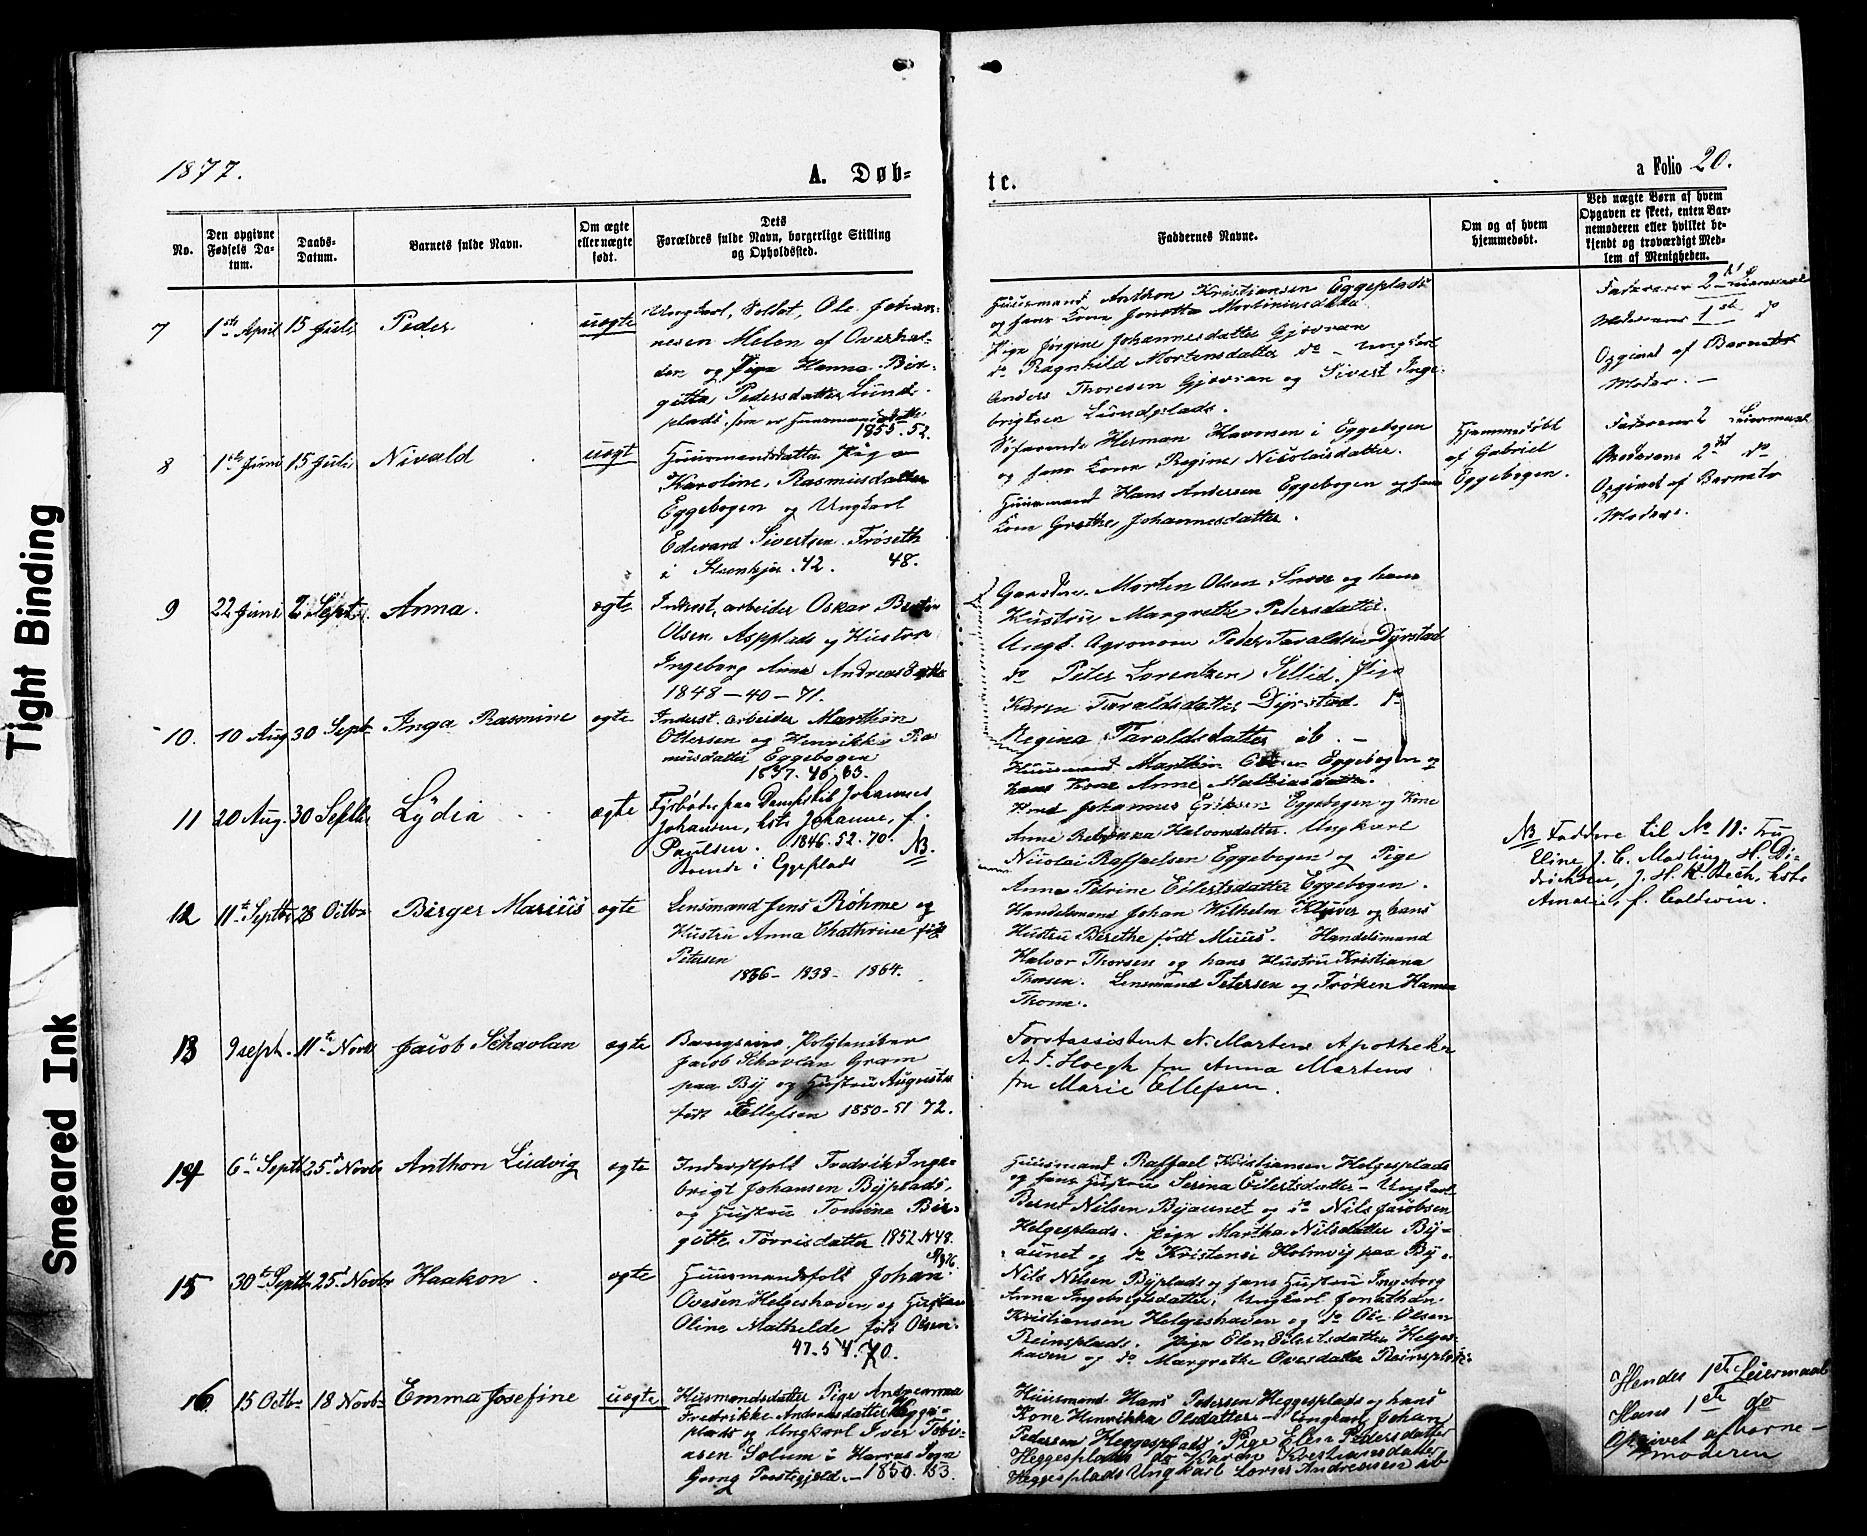 1877.
A. Døb-
te.
a Folio 20.
No.
Den opgivne Fødsels Da-
tum.
Daabs-
Datum.
Barnets fulde Navn.
Om ægte
eller uægte
født.
Dets
Forældres fulde Navn, borgerlige Stilling
og Opholdssted.
Faddernes Navne.
Om og af hvem
hjemmedøbt.
Ved uægte Børn af hvem
Opgaven er skeet, enten Bar-
nemoderen eller hvilket be-
kjendt og troværdigt Med-
lem af Menigheden.
7
1ste April
15 Juli
Peder
uægte
Ungkarl, Soldat, Ole Johan-
nesen Melen af Overhal-
den og Pige Hanna Bir-
gitta Pedersdatter Lunds-
plads, som er Huusmands
1855. 52.
Huusmand Anthon Kristiansen Eggeplads
og hans Kone Jonetta Mortiniusdatter
Pige Jørgine Johannesdatter Gjævran
do Ragnhild Mortensdatter do - Ungkarl
Anders Thoresen Gjævran og Sivert Inge-
brigtsen Lundsplads.
Faderens 2det Leiermaal
Moderens 1ste do
Opgivet af Barnets
Moder. -
8
1ste Juni
15 Juli
Nivald
uægt
Huusmandsdatter Pige
Karoline Rasmusdatter
Eggebogen og Ungkarl
Edvard Sivertsen Trøseth
i Steenkjær. 42. 48.
Søfarende Herman Havorsen i Eggebogen
og hans Kone Regine Nicolaisdatter.
Huusmand Hans Andersen Eggebogen og hans
Kone Grethe Johannesdatter.
Hjemmedøbt
af Gabriel
Eggebogen.
Faderens 2 Leiermaal
Moderens 2det do
Opgivet af Barnets
Moder.
9
22 Juni
2 Septbr.
Anna.
ægte
Inderst, arbeider Oskar
Olsen Aspplads og Hustru
Ingeborg Anna Andreasdatter
1848 - 40 - 71.
Gaardm. Morten Olsen Snaase og hans
Hustru Margrethe Petersdatter.
Ungk. Agronom Peder Taraldsen Dyrstad
do Peter Lorentzen Sellid. Pige
Karen Taraldsdatter Dyrstad. do
Regina Taraldsdatter ib. -
10.
10 Aug
30 Septbr
Inga Rasmine
ægte
Inderst. arbeider Marthin
Ottersen og Henrikke Ras-
musdatter Eggebogen
1837. 46. 63.
Huusmand Marthin Eggebogen og
hans Kone Anne Mathiasdatter.
Johannes Eriksen Eggebogen og Kone
Anne Rebekka Halvorsdatter. Ungkarl
Nicolai Raffaelsen Eggebogen og Pige
Anne Petrine Eilertsdatter Eggebogen.
11
20 Aug.
30 Septbr
Lydia
ægte
Fyrbøder paa Dampskib Johannes
Johansen, hstr Johanne, f.
Paulsen. 1846. 52. 70. NB.
Boende i Eggeplads
NB Faddere til No 11: Fru
Eline J. C. Masling, H. Di-
drichsen, J. H. K. Bech, hstr
Amalie, f. Coldevin.
12
11te Septbr
28 Octbr
Birger Marius
ægte
Lensmand Jens Røhme og
Hustru Anna Chathrine født
Petersen
1836 - 1838 - 1864.
Handelsmand Johan Wilhelm Klüver og hans
Hustru Berethe født Muus. Handelsmand
Halvor Thorsen og hans Hustru Kristiana
Thorsen. Lensmand Petersen og Frøken Hanna
Thorne.
13
9 sept.
11te Novbr
Jacob Schavlan
ægte
Brugseier, Polytekniker
Jacob Schavlan Gram
paa By og Hustru Augusta
født Ellefsen 1850 - 51 72.
Forstassistent N. Martens Apotheker
A. T. Hoegh fru Anna Martens
fru Marie Ellefsen.
14
6te Septbr
25de Novbr
Anthon Ludvig
ægte
Inderstfolk Fredrik Inge-
brigt Johansen Byplads,
og Hustru Tomine Bir-
gitte Torrisdatter 1852 N 48.
N 76.
Huusmand Raffael Kristiansen Helgesplads
og hans Hustru Serina Eilertsdatter - Ungkarl
Bernt Nilsen Byaunet og do Nils Jacobsen
Helgesplads. Pige Martha Nilsdatter By-
aunet og do Kristense Holmvig paa By.
15
30te Septbr
25de Novbr
Haakon
ægte
Huusmandsfolk Johan
Ovesen Helgeshaven og Hustru
Oline Mathilde født Olsen.
47. 54. 70.
Nils Nilsen Byplads og hans Hustru Ingeborg
Anna Ingebrigtsdatter, Ungkarl Jonathan
Kristiansen Helgeshaven og do Ole Olsen
Reinsplads. Pige Elen Eilertsdatter Helges-
haven og do Margrethe Ovesdatter Reinsplads.
16
15 Octbr
18 Novbr
Emma Josefine
uægte
Husmandsdatter Pige Andreanna
Fredrikke Andreasdatter Hegge-
plads og Ungkarl Iver Tobi-
asen Solum i Harran Sogn
Grong Præstegjeld - 1850. 53.
Huusmand Hans Pedersen Heggesplads og hans
Kone Henrikka Olsdatter - Ungkarl Johan
Pedersen Heggesplads Pige Elen Pedersdatter
Heggesplads do Karen Kristiansdatter
Heggesplads Ungkarl Lornts Andreasen ib
Hendes 1ste Leiermaal
Hans 1ste do
Opgivet af barne-
moderen
Tight Binding
Smeared Ink